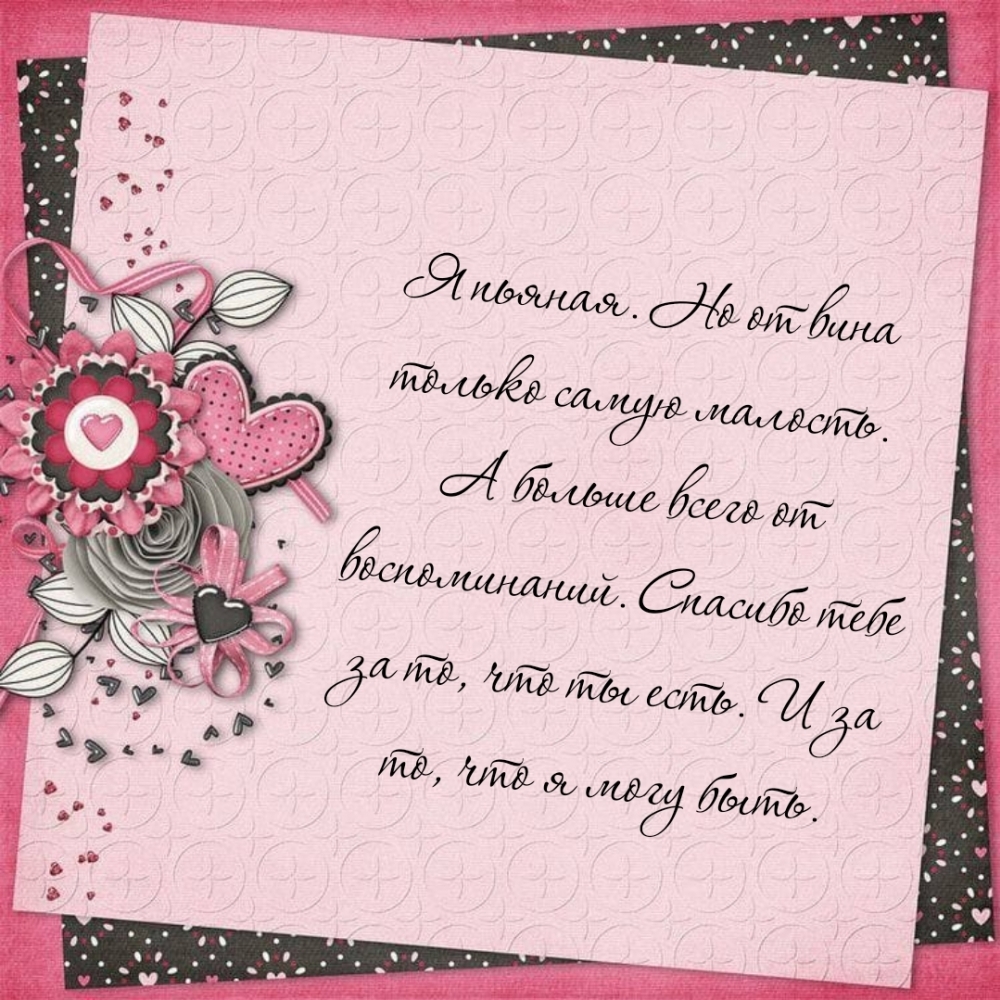 Я пьяная. Но от вина
только самую малость.
А больше всего от
воспоминаний. Спасибо тебе
за то, что ты есть. И за
то, что я могу быть.